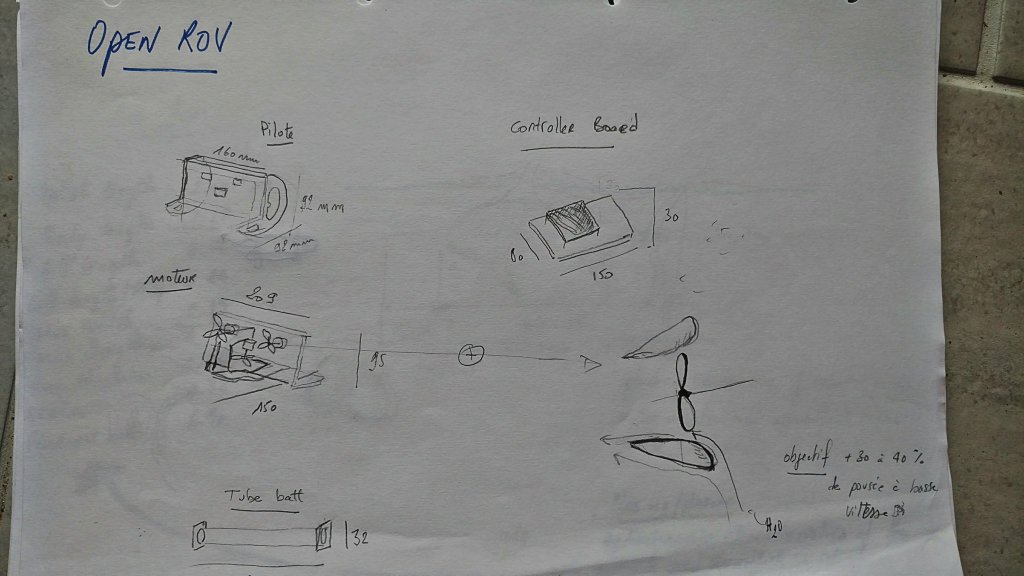 OPEN ROV
Pilote
160 mm
92 mm
92 mm
Controller Board
30
80
150
moteur
209
95
150
objectif + 30 à 40 %
de poussée à basse
vitesse
H2O
Tube batt
32